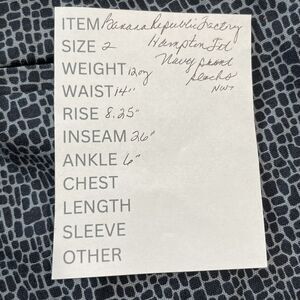 ITEM Banana Republic Factory
SIZE 2 Hampton Fit
WEIGHT 12oz Navy print
WAIST 14" slacks
RISE 8.25" NWT
INSEAM 26"
ANKLE 6"
CHEST
LENGTH
SLEEVE
OTHER